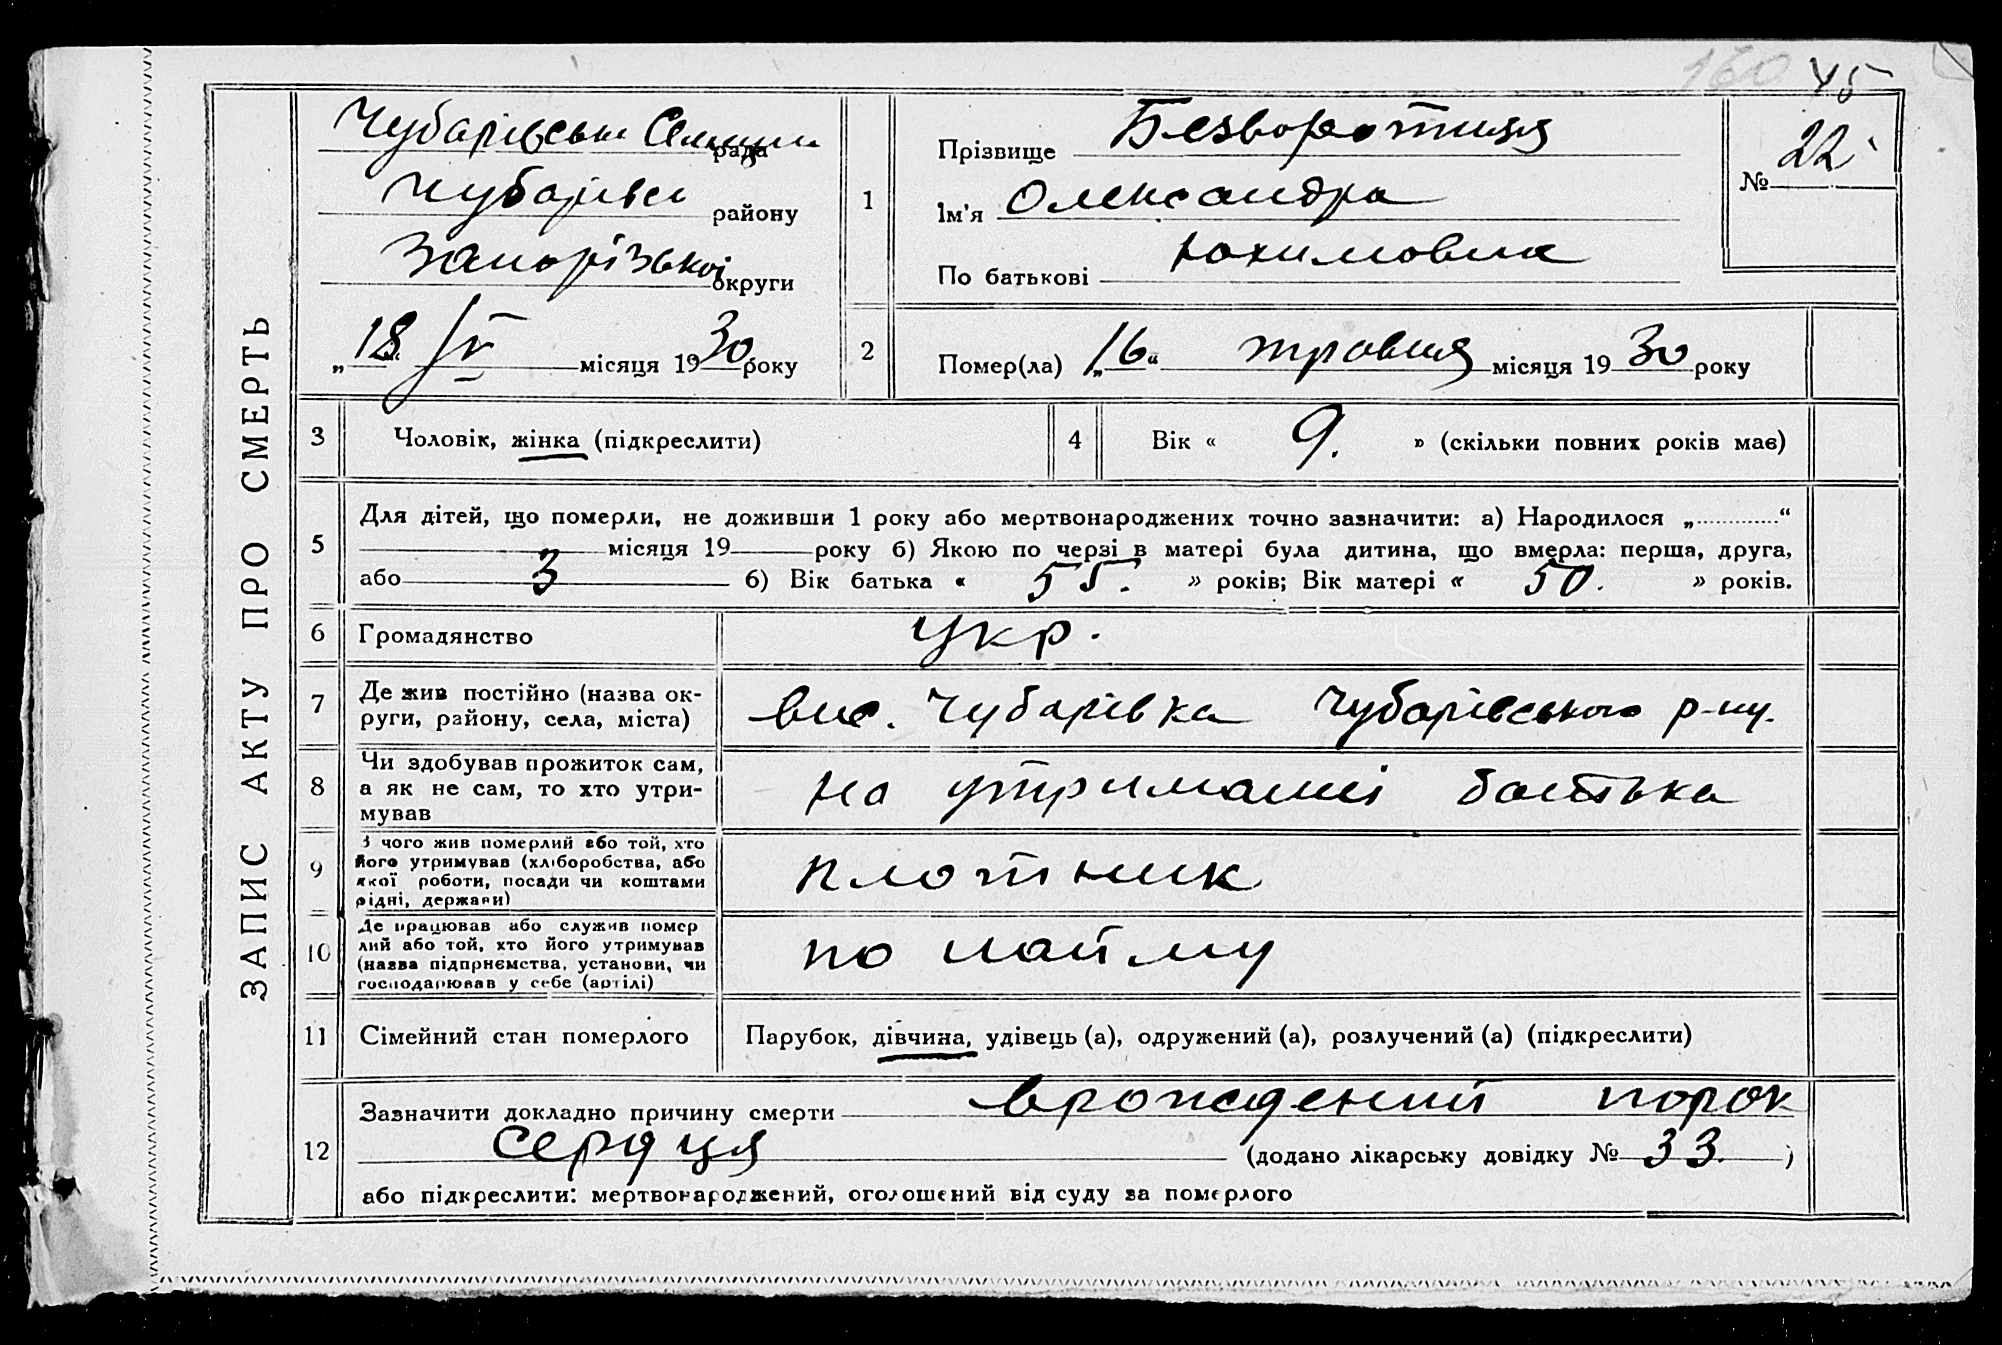 160 45
ЗАПИС АКТУ ПРО СМЕРТЬ
Чубарівська Селищн рада
Чубарівсь району
Запорізької округи
„18“ IV місяця 1930 року
1
Прізвище Безворотиця
Ім'я Олександра
По батькові Юхимовна
№ 22
2
Помер(ла) „16“ травня місяця 1930 року
3 Чоловік, жінка (підкреслити)
4 Вік « 9. » (скільки повних років має)
5
Для дітей, що померли, не доживши 1 року або мертвонароджених точно зазначити: а) Народилося „............“
місяця 19 року б) Якою по черзі в матері була дитина, що вмерла: перша, друга,
або 3 б) Вік батька « 55. » років; Вік матері « 50. » років.
6 Громадянство укр.
7 Де жив постійно (назва ок-
руги, району, села, міста)
вис. Чубарівка Чубарівського р-ну.
8 Чи здобував прожиток сам,
а як не сам, то хто утри-
мував
на утриманні батька
9 З чого жив померлий або той, хто
його утримував (хліборобства, або
якої роботи, посади чи коштами
рідні, держави)
плотник
10 Де працював або служив помер
лий або той, хто його утримував
(назва підприємства, установи, чи
господарював у себе (артілі)
по найму
11 Сімейний стан померлого Парубок, дівчина, удівець (а), одружений (а), розлучений (а) (підкреслити)
12
Зазначити докладно причину смерти врождений порок
сердця (додано лікарську довідку № 33. )
або підкреслити: мертвонароджений, оголошений від суду за померлого